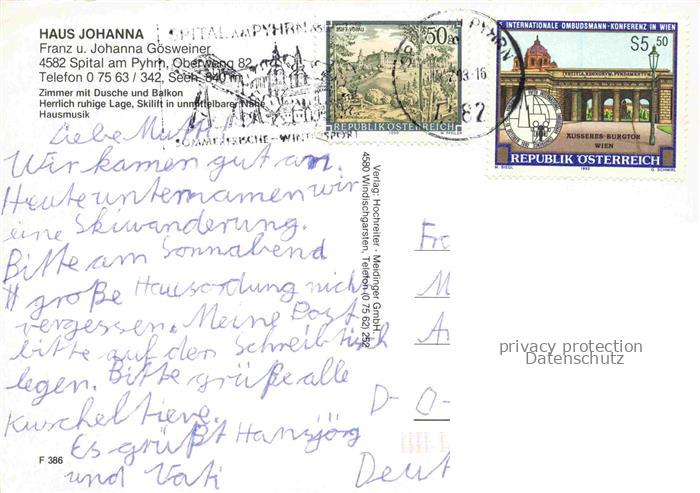 HAUS JOHANNA
Franz u. Johanna Gösweiner
4582 Spital am Pyhrn, Oberweng 82
Telefon 0 75 63 / 342, Seeh. 840 m
Zimmer mit Dusche und Balkon
Herrlich ruhige Lage, Skilift in unmittelbarer Nähe
Hausmusik
SPITAL AM PYHRN
SOMMERFRISCHE - WINTERSPORT
50g
STIFT VORAU
REPUBLIK ÖSTERREICH
1990
PYHRN
93-16
82
INTERNATIONALE OMBUDSMANN-KONFERENZ IN WIEN
S5,50
ÄUSSERES BURGTOR
WIEN
REPUBLIK ÖSTERREICH
M. SIEGL 1992 G. SCHMIRL
Liebe Mutti!
Wir kamen gut an.
Heute unternamen wir
eine Skiwanderung.
Bitte am Sonnabend
große Hausordung nich
vergessen. Meine Post
bitte auf den Schreibtisch
legen. Bitte grüße alle
Kuscheltiere.
Es grüßt Hansjörg
und Vati
F 386
Verlag: Hochreiter - Meidinger GmbH.
4580 Windischgarsten, Telefon (0 75 62) 252
Fr
M
A
D- O-
Deut
privacy protection
Datenschutz